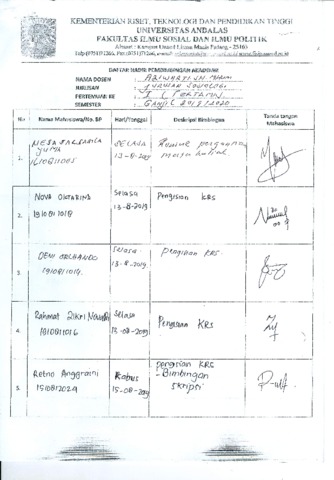 KEMENTERIAN RISET, TEKNOLOGI DAN PENDIDIKAN TINGGI
UNIVERSITAS ANDALAS
FAKULTAS ILMU SOSIAL DAN ILMU POLITIK
Alamat : Kampus Unand Limau Manis Padang - 25163
DAFTAR HADIR PEMBIMBINGAN AKADEMIK
NAMA DOSEN :
JURUSAN : JURUSAN SOSIOLOGI
PERTEMUAN KE : I (PERTAMA)
SEMESTER : GANJIL 2019/2020
No Nama Mahasiswa/No. BP Hari/Tanggal Deskripsi Bimbingan Tanda tangan Mahasiswa
1. SELASA
13-8-2019
2. NOVA OKTARINA Selasa Pengisian KRS
1810811018 13-8-2019
3. DENI ORLANDO Selasa pengisian KRS
1910811014 13-8-2019
4. Rahmat Zikri Selasa Pengisian KRS
1810811016 13-08-2019
5. Retno Anggraini Rabu pengisian KRS
1510812029 15-08-2019 - Bimbingan
skripsi